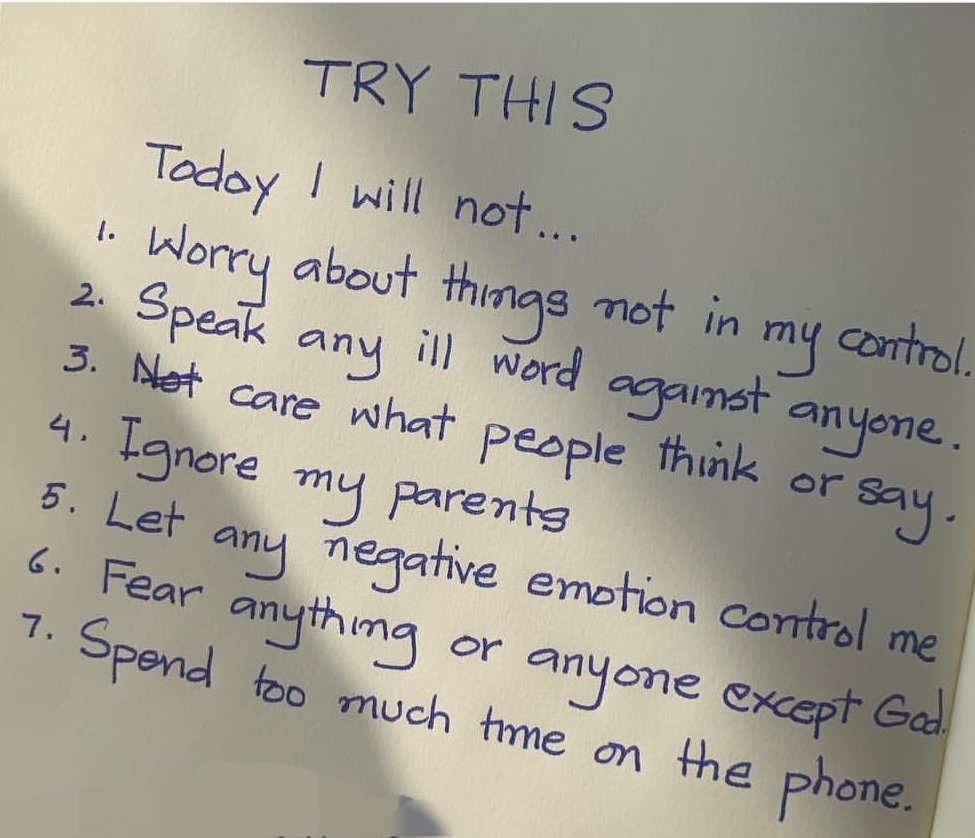 TRY THIS
Today I will not...
1. Worry about things not in my control.
2. Speak any ill word against anyone.
3. Not care what people think or say.
4. Ignore my parents
5. Let any negative emotion control me
6. Fear anything or anyone except God.
7. Spend too much time on the phone.